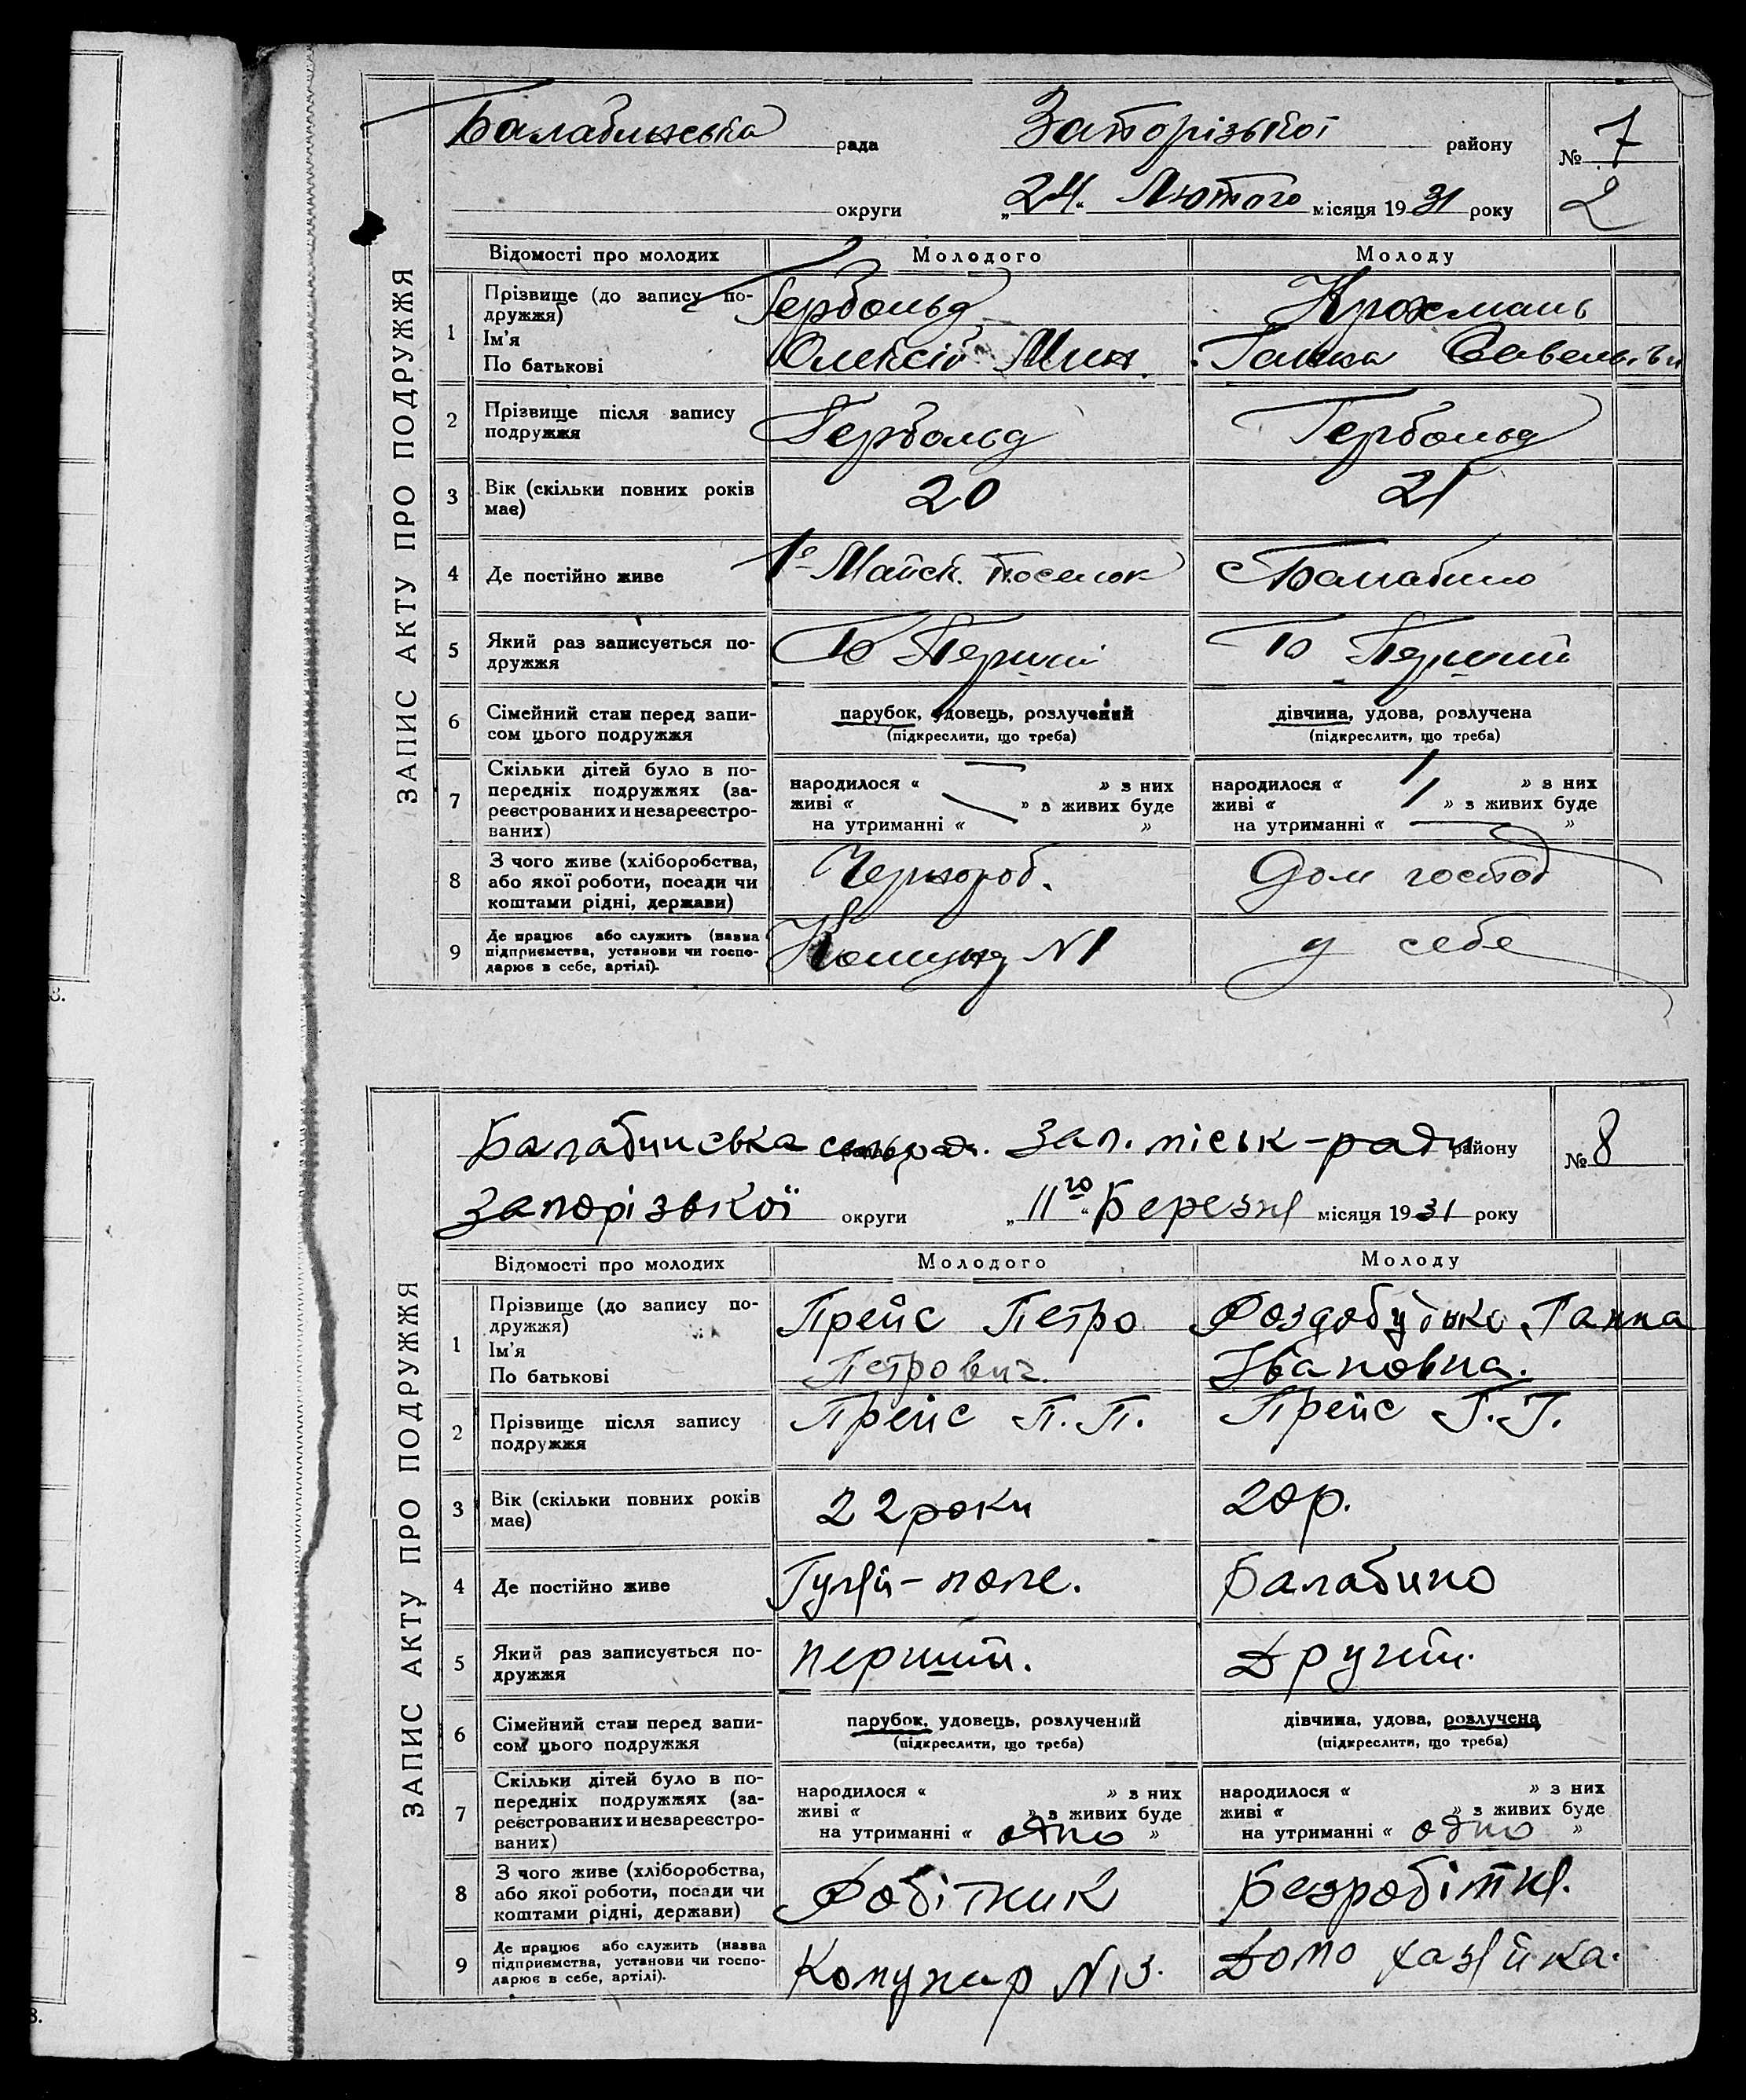 ЗАПИС АКТУ ПРО ПОДРУЖЖЯ
Балабинська рада Запорізької району № 7
округи „24“ Лютого місяця 1931 року 2
Відомості про молодих Молодого Молоду
1 Прізвище (до запису по-
дружжя)
Ім'я
По батькові
Гербольд
Олексій Мик.
Крохмаль
Ганна Савельевн
2 Прізвище після запису
подружжя
Гербольд Гербольд
3 Вік (скільки повних років
має)
20 21
4 Де постійно живе 1е Майск. Поселок с Балабино
5 Який раз записується по-
дружжя
Перший Перший
6 Сімейний стан перед запи-
сом цього подружжя
парубок, удовець, розлучений
(підкреслити, що треба)
дівчина, удова, розлучена
(підкреслити, що треба)
7 Скільки дітей було в по-
передніх подружжях (за-
реєстрованих и незареєстро-
ваних)
народилося « — » з них
живі « — » з живих буде
на утриманні « »
народилося « » з них
живі « » з живих буде
на утриманні « — »
8 З чого живе (хліборобства,
або якої роботи, посади чи
коштами рідні, держави)
Чернороб. Дом господ
9 Де працює або служить (назва
підприємства, установи чи госпо-
дарює в себе, артілі).
N1 у себе
3.
ЗАПИС АКТУ ПРО ПОДРУЖЖЯ
Балабинська сельрада. Зап. міськ-ради району № 8
Запорізької округи „11го“ Березня місяця 1931 року
Відомості про молодих Молодого Молоду
1 Прізвище (до запису по-
дружжя)
Ім'я
По батькові
Прейс Петро
Петрович.
Роздобудько Ганна
Івановна.
2 Прізвище після запису
подружжя
Прейс П. П. Прейс Г. І.
3 Вік (скільки повних років
має)
22 роки 20 р.
4 Де постійно живе Гуляй-поле. Балабино
5 Який раз записується по-
дружжя
перший. Другий.
6 Сімейний стан перед запи-
сом цього подружжя
парубок, удовець, розлучений
(підкреслити, що треба)
дівчина, удова, розлучена
(підкреслити, що треба)
7 Скільки дітей було в по-
передніх подружжях (за-
реєстрованих и незареєстро-
ваних)
народилося « » з них
живі « » з живих буде
на утриманні « одно »
народилося « » з них
живі « » з живих буде
на утриманні « одно »
8 З чого живе (хліборобства,
або якої роботи, посади чи
коштами рідні, держави)
Робітник Безробітня.
9 Де працює або служить (назва
підприємства, установи чи госпо-
дарює в себе, артілі).
Домо хазяйка.
3.